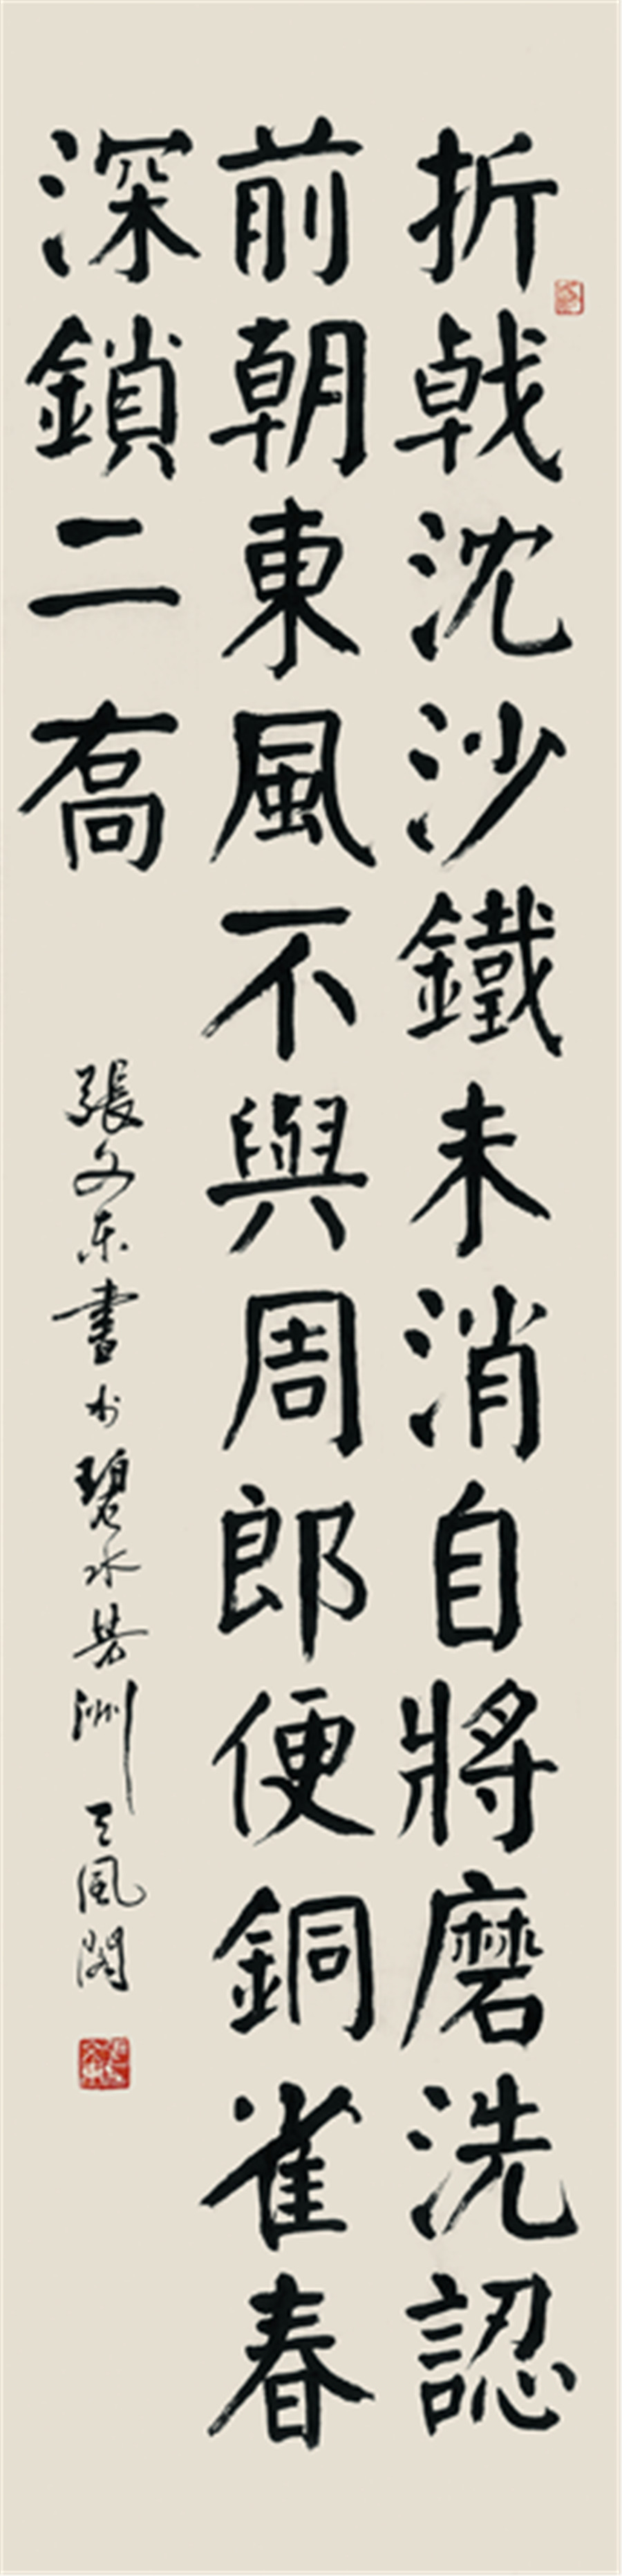 折戟沈沙鐵未消自將磨洗認
前朝東風不與周郎便銅雀春
深鎖二喬
張文东書於碧水芳洲天風閣